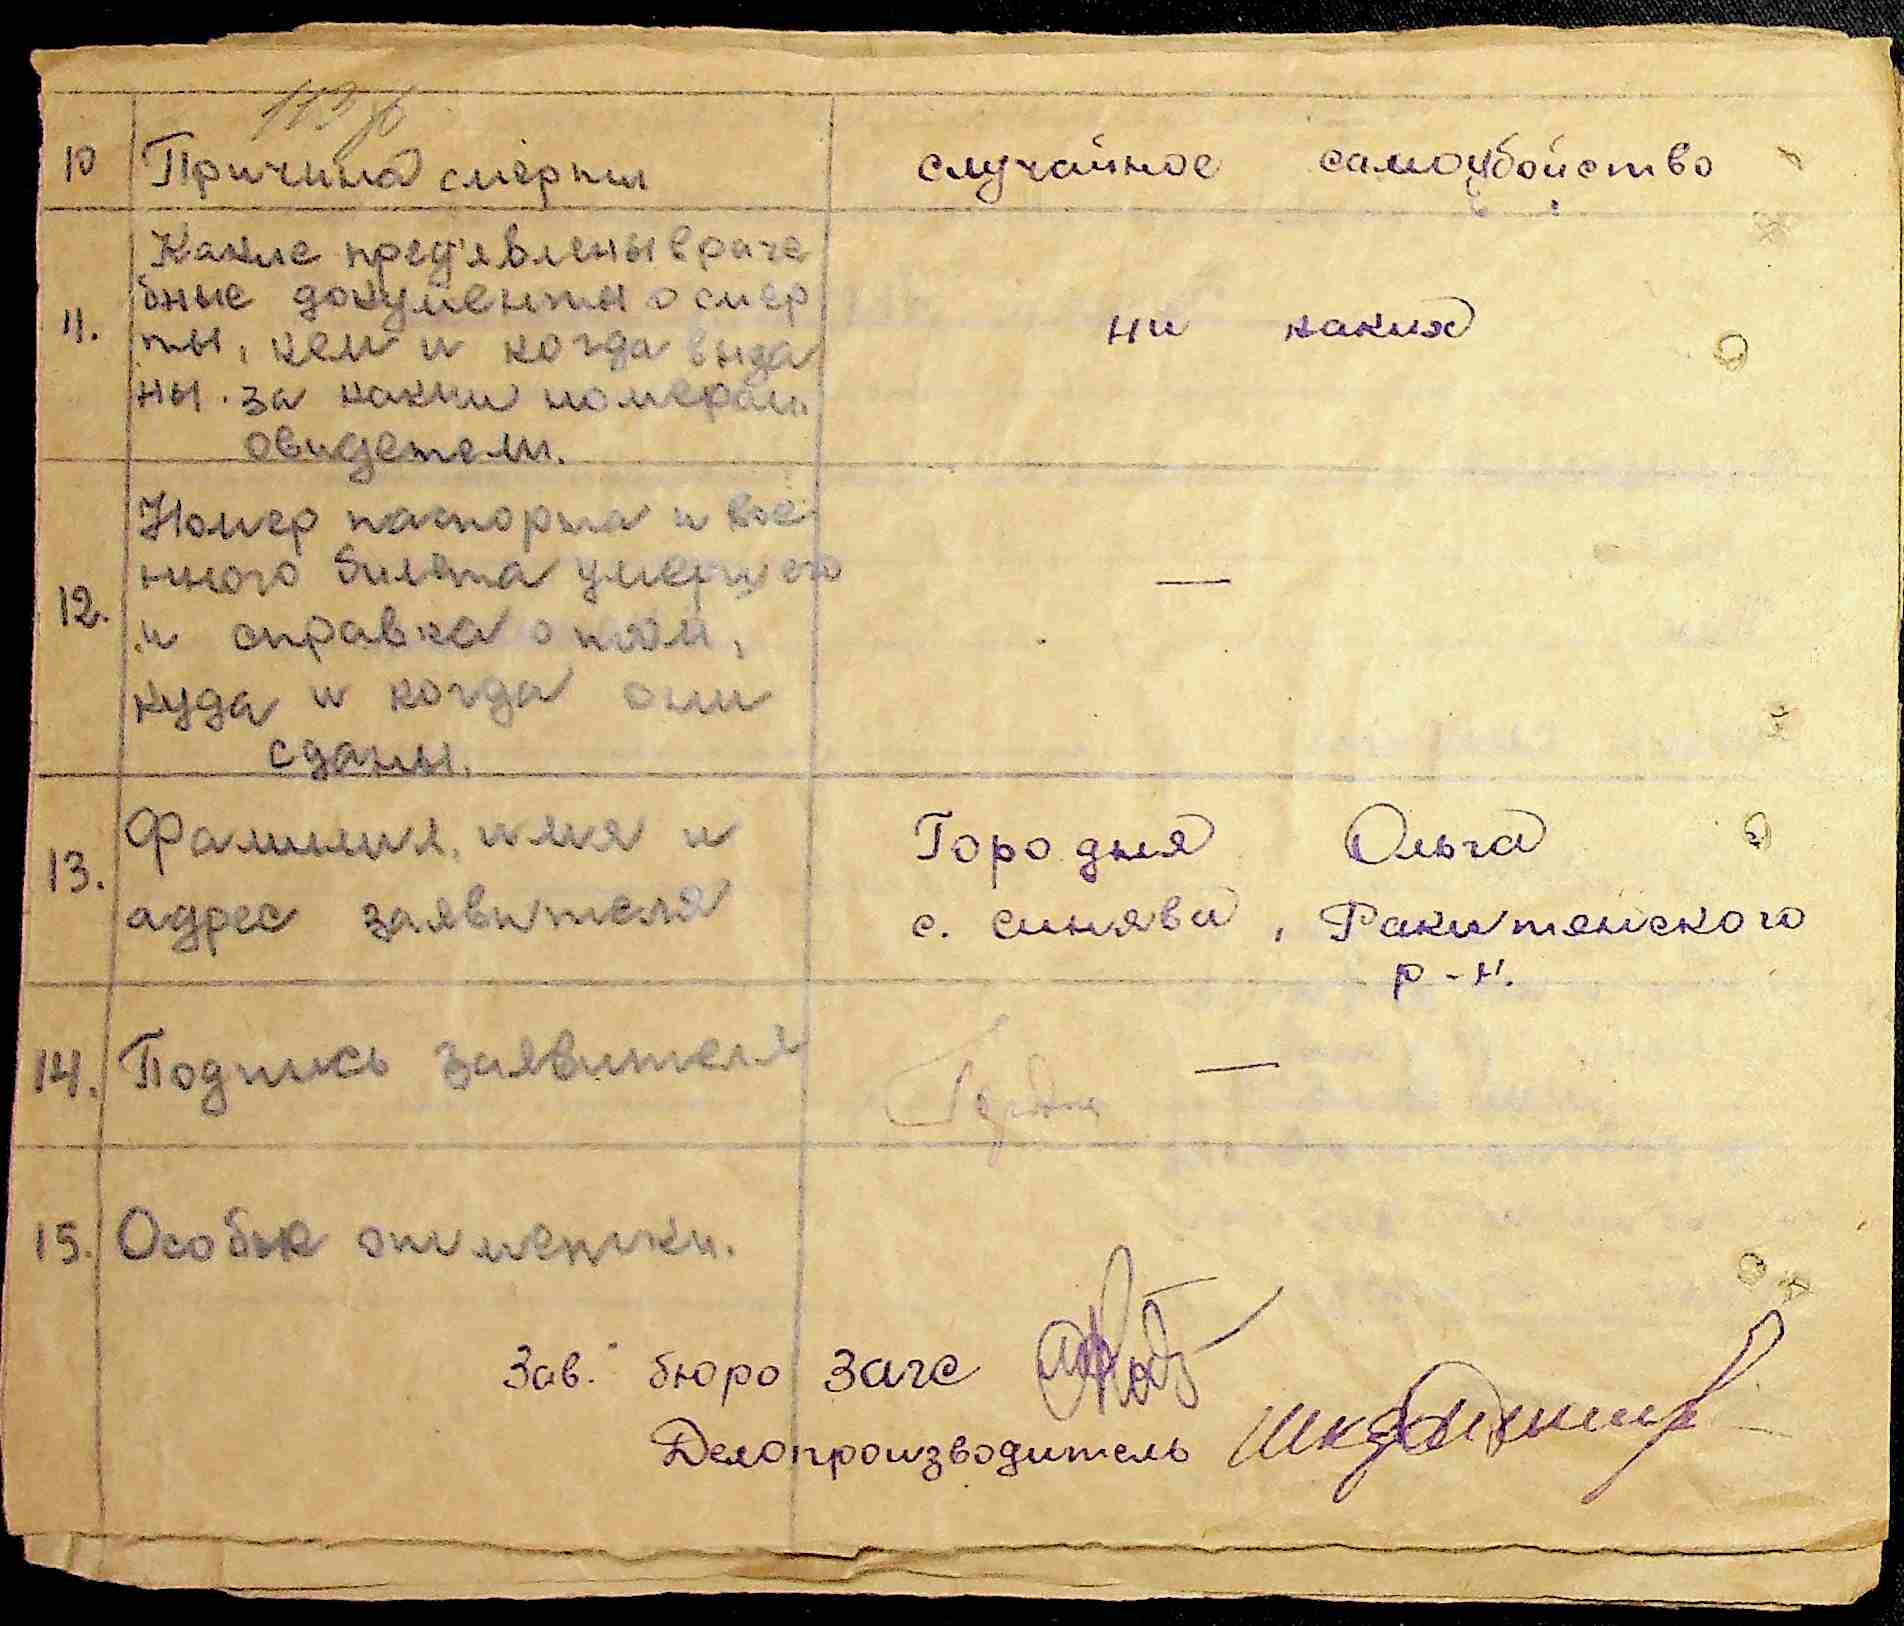 10 Причина смерти случайное самоубойство
Какие пред'явлены враче
бные документы о смер
11. ты, кем и когда выда ни каких
ны. за каким номерам.
свидетели.
Номер паспорта и вое
нного билета умершего —
12. и справка о том,
куда и когда они
сданы.
Фамилия, имя и Городня Ольга
13. адрес заявителя с. Синява, Ракитянского
р-н.
14. Подпись заявителя —
15. Особые отметки.
Зав. бюро загс
Делопроизводитель